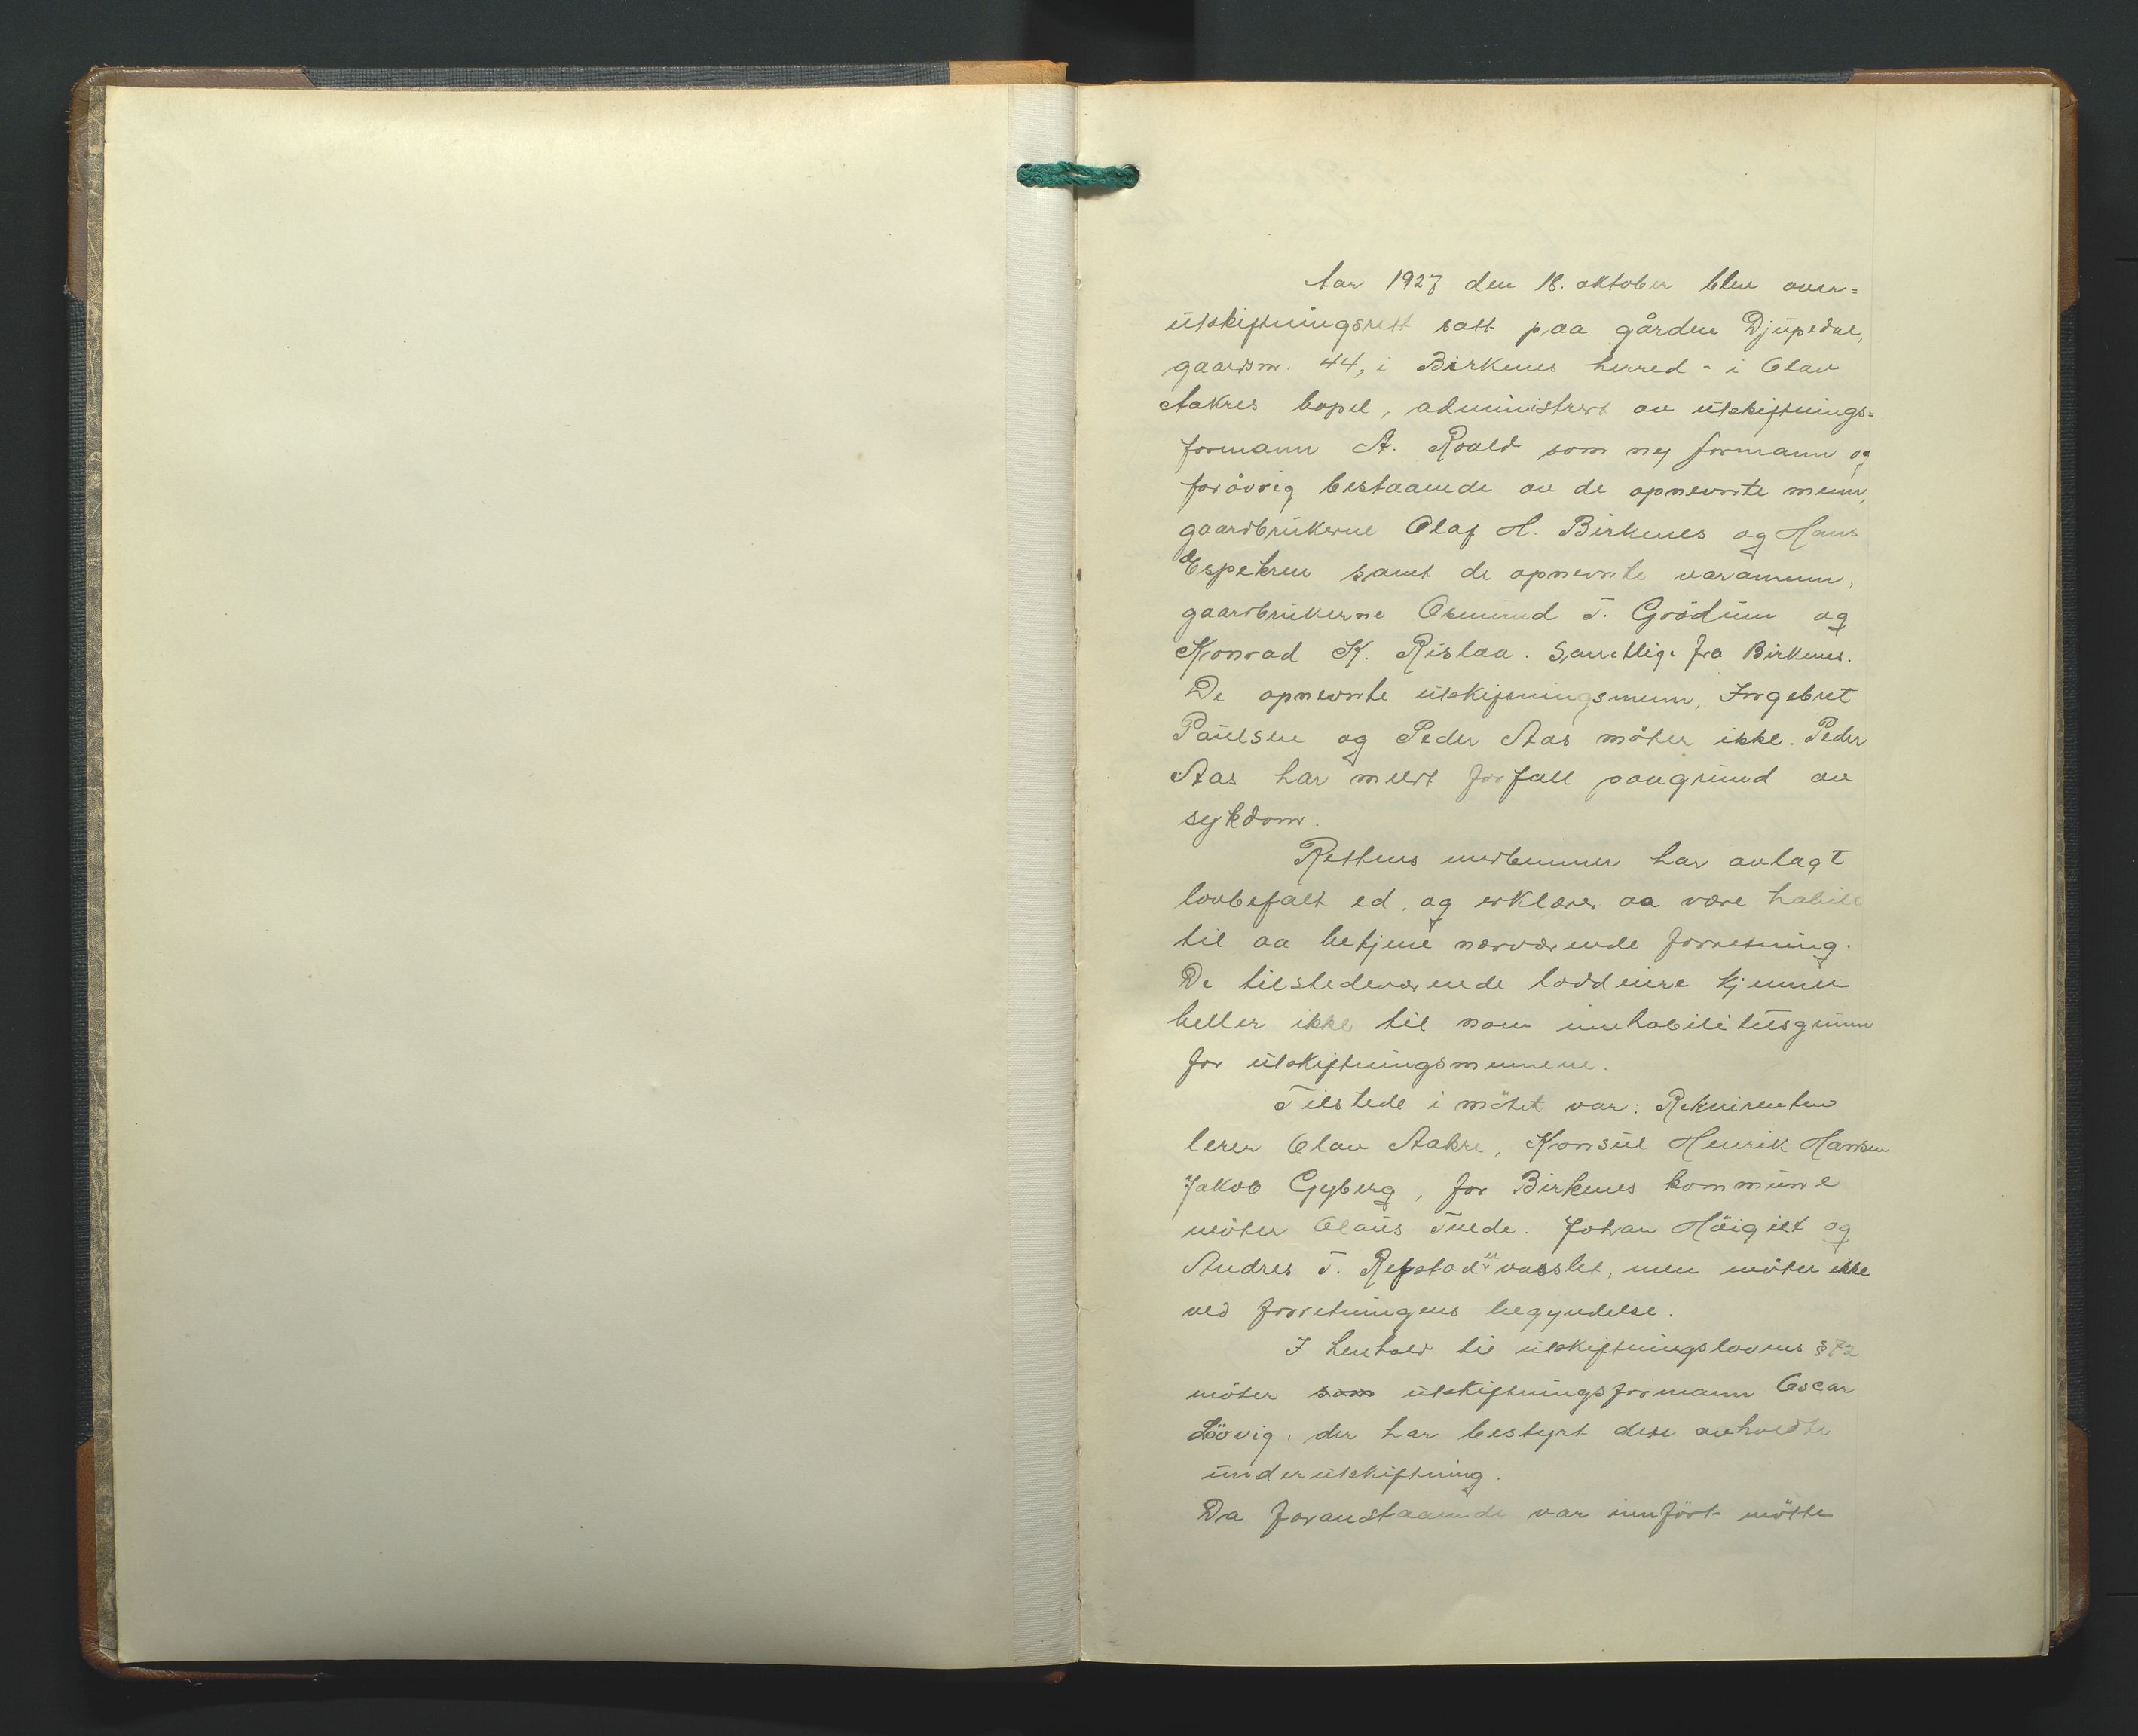 Aar 1927 den 18. oktober blev over=
utskiftningsrett satt paa gården Djupedal,
gaardsnr. 44, i Birkenes herred - i Olav
Aakres bopel, administrert av utskiftnings=
formann A. Roald som ny formann og
forövrig bestaaende av de opnevnte menn,
gaardbrukerne Olaf H. Birkenes og Hans
Espekren samt de opnevnte varamenn,
gaardbrukerne Osmund T. Grödum og
Konrad K. Rislaa. Samtlige fra Birkenes.
De opnevnte utskiftningsmenn, Ingebret
Paulsen og Peder Aas möter ikke. Peder
Aas har meldt forfall paagrund av
sykdom.
Rettens medlemmer har avlagt
lovbefalt ed, og erklærer aa være habile
til aa betjene nærværende forretning.
De tilstedeværende loddeiere kjenner
heller ikke til noen innhabilitetsgrunn
for utskiftningsmennene.
Tilstede i mötet var: Rekvirenten
lerer Olav Aakre, Konsul Henrik Hansen
Jakob Gyberg, for Birkenes kommune
möter Olaus Tvede. Johan Höigilt og
Andres T. Repstad er varslet, men möter ikke
ved forretningens begyndelse.
I henhold til utskiftningslovens § 72
möter som utskiftningsformann Oscar
Lövig, der har bestyrt den avholdte
underutskiftning.
Da foranstaaende var innfört mötte